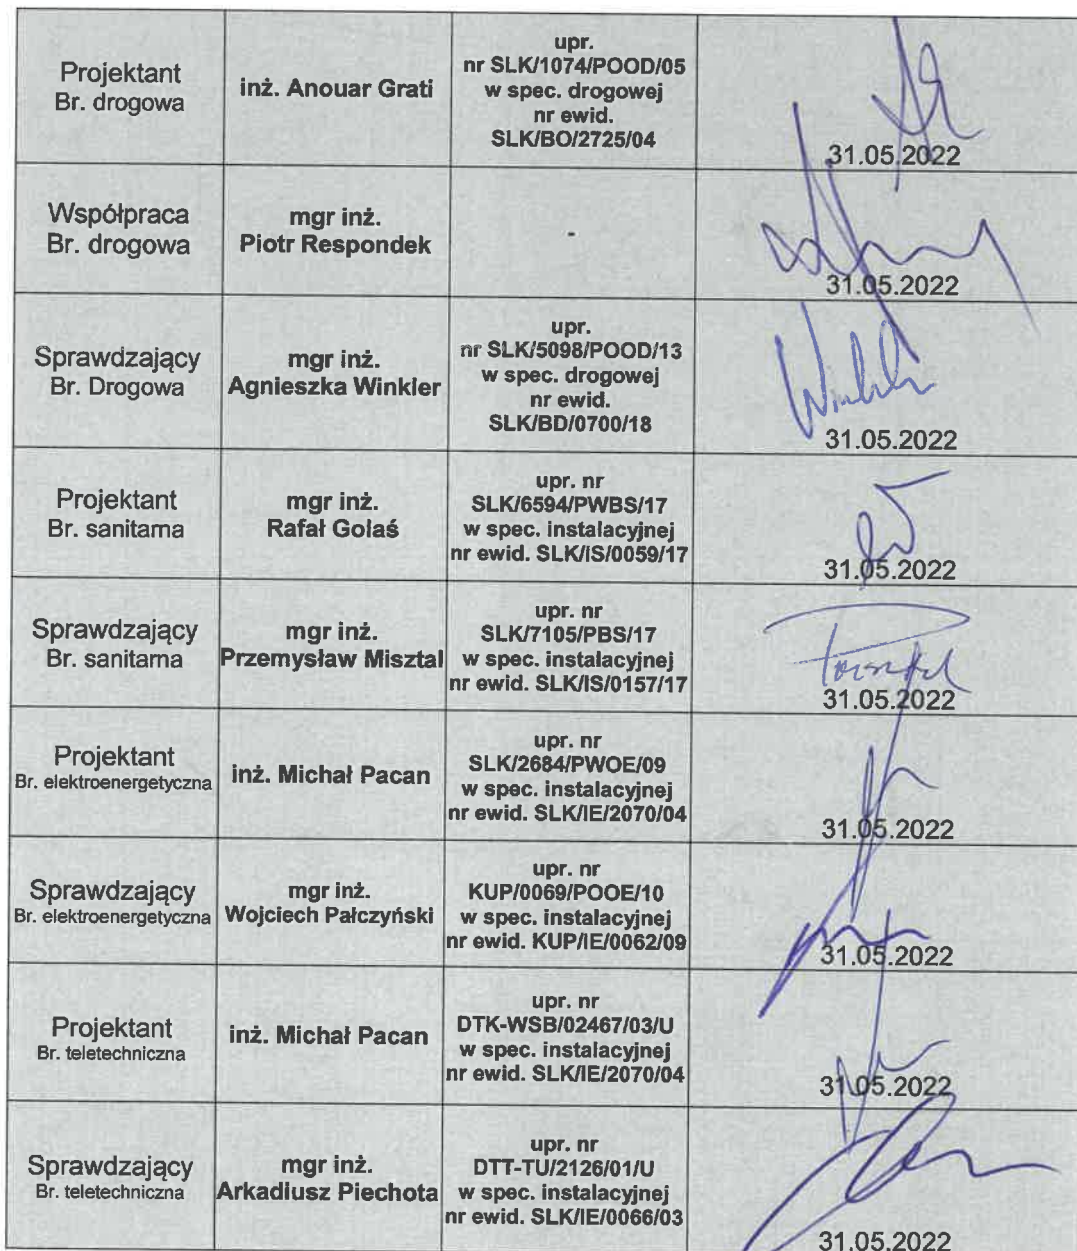 Projektant
Br. drogowa
inż. Anouar Grati
upr.
nr SLK/1074/POOD/05
w spec. drogowej
nr ewid.
SLK/BO/2725/04
31.05.2022
Współpraca
Br. drogowa
mgr inż.
Piotr Respondek
-
31.05.2022
Sprawdzający
Br. Drogowa
mgr inż.
Agnieszka Winkler
upr.
nr SLK/5098/POOD/13
w spec. drogowej
nr ewid.
SLK/BD/0700/18
31.05.2022
Projektant
Br. sanitarna
mgr inż.
Rafał Golaś
upr. nr
SLK/6594/PWBS/17
w spec. instalacyjnej
nr ewid. SLK/IS/0059/17
31.05.2022
Sprawdzający
Br. sanitarna
mgr inż.
Przemysław Misztal
upr. nr
SLK/7105/PBS/17
w spec. instalacyjnej
nr ewid. SLK/IS/0157/17
31.05.2022
Projektant
Br. elektroenergetyczna
inż. Michał Pacan
upr. nr
SLK/2684/PWOE/09
w spec. instalacyjnej
nr ewid. SLK/IE/2070/04
31.05.2022
Sprawdzający
Br. elektroenergetyczna
mgr inż.
Wojciech Pałczyński
upr. nr
KUP/0069/POOE/10
w spec. instalacyjnej
nr ewid. KUP/IE/0062/09
31.05.2022
Projektant
Br. teletechniczna
inż. Michał Pacan
upr. nr
DTK-WSB/02467/03/U
w spec. instalacyjnej
nr ewid. SLK/IE/2070/04
31.05.2022
Sprawdzający
Br. teletechniczna
mgr inż.
Arkadiusz Piechota
upr. nr
DTT-TU/2126/01/U
w spec. instalacyjnej
nr ewid. SLK/IE/0066/03
31.05.2022